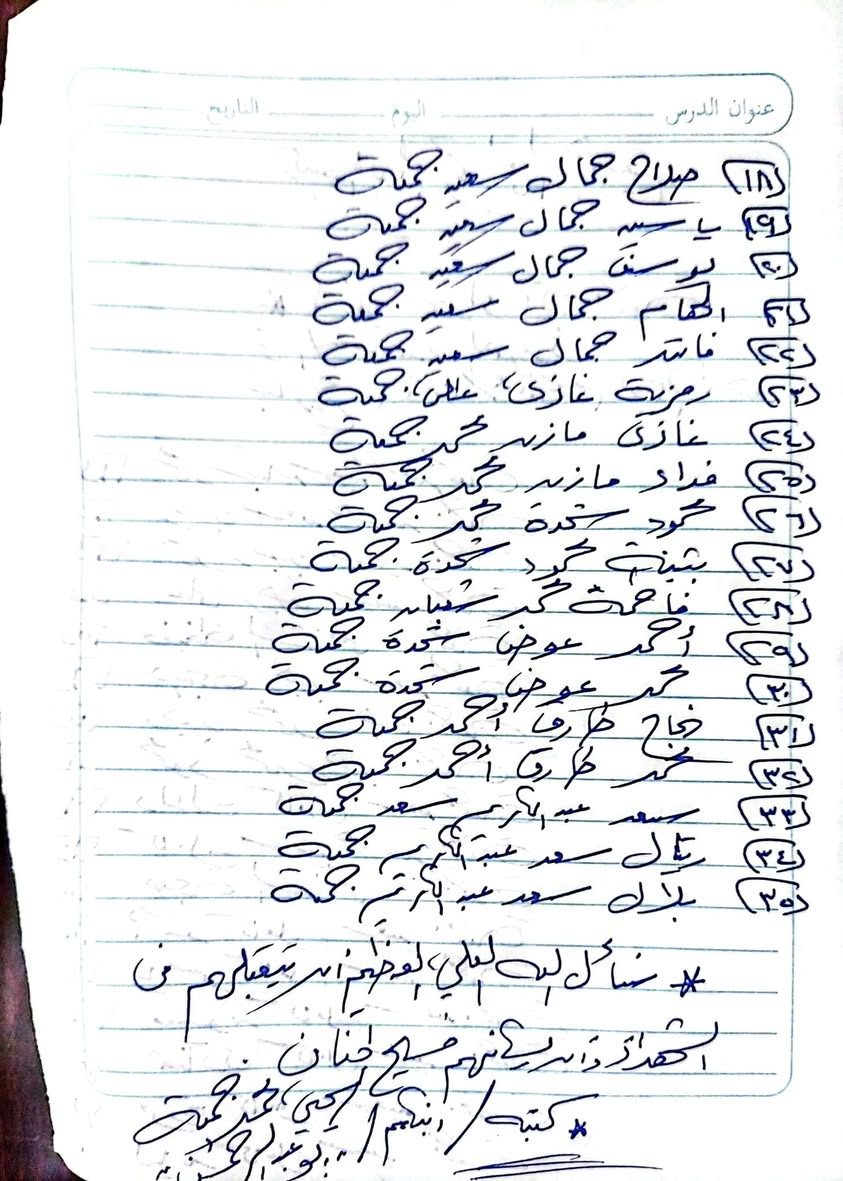 عنوان الدرس اليوم التاريخ
(١٨) صلاح جمال سعيد جمعة
(١٩) ياسين جمال سعيد جمعة
(٢٠) يوسف جمال سعيد جمعة
(٢١) الهام جمال سعيد جمعة
(٢٢) جمال سعيد جمعة
(٢٣) رمزية غازي جمعة
(٢٤) غازي مازن محمد جمعة
(٢٥) فداء مازن محمد جمعة
(٢٦) محمود شحدة محمد جمعة
(٢٧) بثينة محمود شحدة جمعة
(٢٨) فاطمة محمد شعبان جمعة
(٢٩) أحمد عوض شحدة جمعة
(٣٠) محمد عوض شحدة جمعة
(٣١) نجاح طارق أحمد جمعة
(٣٢) محمد طارق أحمد جمعة
(٣٣) سعد عبد الكريم سعد جمعة
(٣٤) ريتال سعد عبد الكريم جمعة
(٣٥) بلال سعد عبد الكريم جمعة
* نسأل الله العلي العظيم ان يتقبلهم في
الشهداء وان يسكنهم فسيح الجنان .
* كتبه / ابنكم / محمد جمعة
"ابو عبد الرحمن"